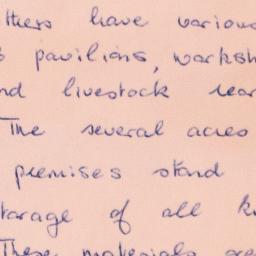 thers have various
pavilions, worksh
nd livestock rear
The several acres
premises stand
torage of all k
These materials are